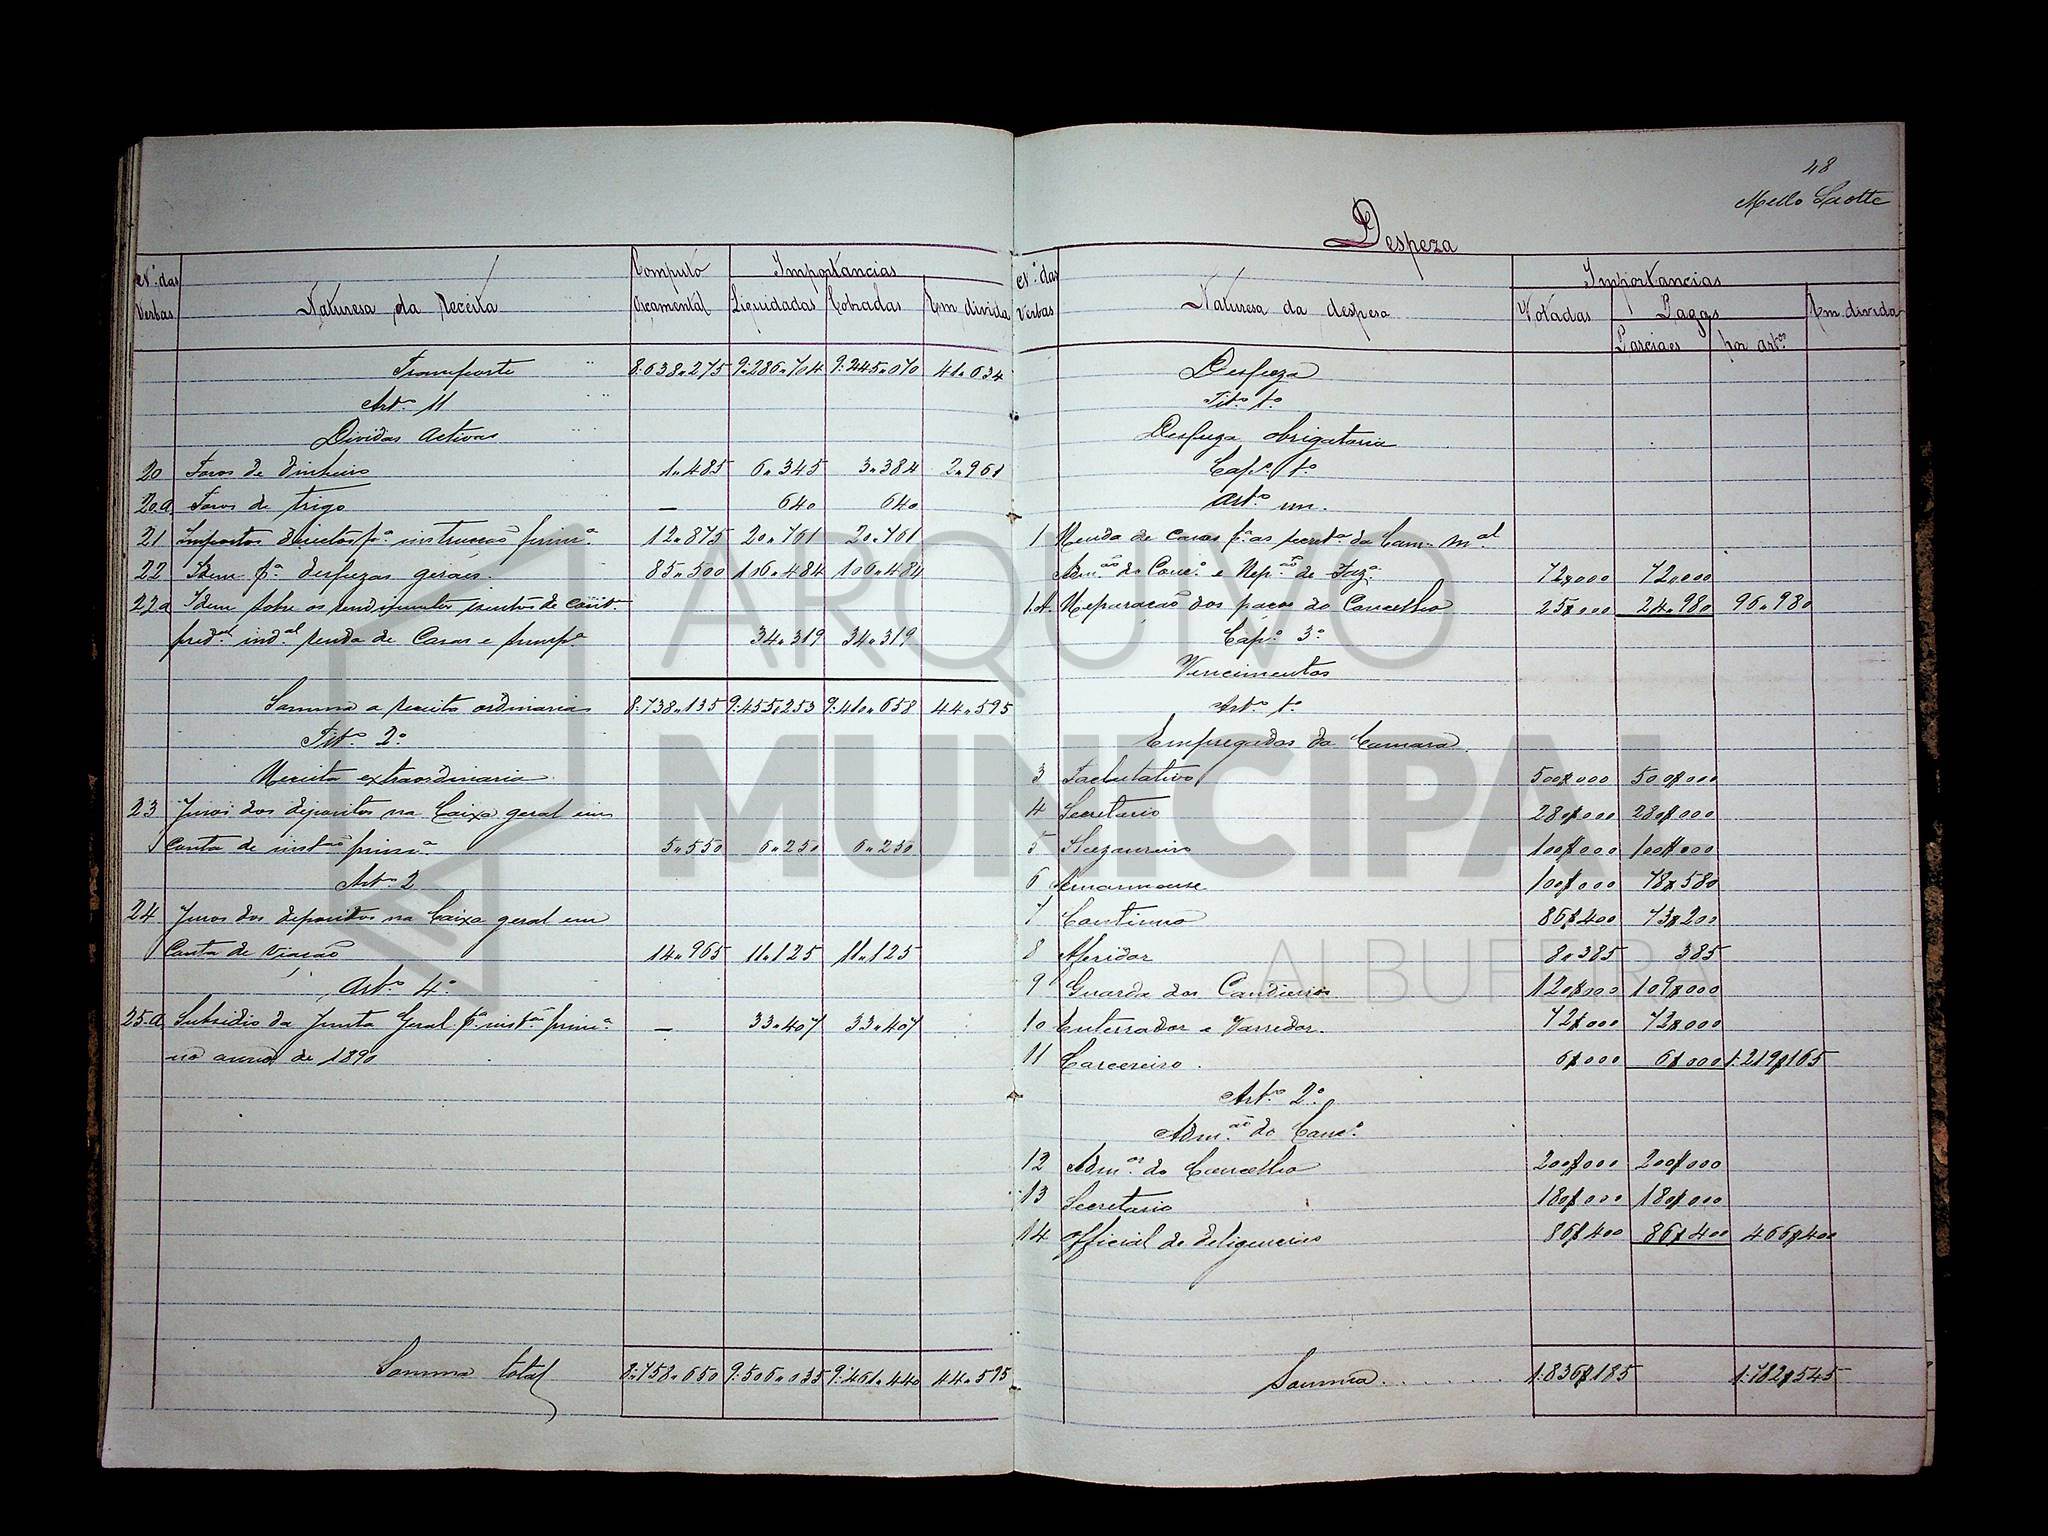 N.º das Verbas | Naturesa da Receita | Computo Orçamental | Importancias | Liquidadas | Cobradas | Em divida
Transporte 8:638"275 9:286"704 9:245"070 41"634
Artº 11
Dividas activas
20 Foros de dinheiro 1"485 6"345 3"384 2"961
20.a Foros de trigo — 640 640
21 Impostos directos pª instrucção primª 12"875 20"761 20"761
22 Idem pª despezas geraes. 85"500 106"484 106"484
22a Idem sobre os rendimentos isentos de cont.
predal indal renda de Casas e sumpª 34"319 34"319
Somma a receita ordinaria 8:738"135 9:455"253 9:410"658 44"595
Titº 2º
Receita extraordinaria
23 Juros dos depositos na Caixa geral em
Conta de instão primª 5"550 6"250 6"250
Artº 2
24 Juros dos depositos na Caixa geral em
Conta de Viação 14"965 11"125 11"125
Artº 4º
25.a Subsidio da Junta Geral pª instão primª — 33"407 33"407
no anno de 1890
Somma total 8:758"650 9:506"035 9:461"440 44"595
48
Mello
Despeza
N.º das Verbas | Naturesa da despesa | Importancias | Votadas | Pagas | Parciaes | por artos | Em divida
Despeza
Titº 1º
Despeza obrigatoria
Capº 1º
Artº un.
1 Renda de casas pª as secretª da Cam. Mal
Admão do Concº e Repão de Fazª 72$000 72$000
1.A. Reparação dos paços do Concelho 25$000 24"980 96"980
Capº 3º
Vencimentos
Artº 1º
Empregados da Camara
3 Facultativo 500$000 500$000
4 Secretario 280$000 280$000
5 Thezoureiro 100$000 100$000
6 Amanuense 100$000 78$580
7 Continuo 86$400 73$200
8 Aferidor 8"385 385
9 Guarda dos Candieiros 120$000 109$000
10 Enterrador e Varredor. 72$000 72$000
11 Carcereiro. 6$000 6$000 1:219$165
Artº 2º
Admão do Concº
12 Admor do Concelho 200$000 200$000
13 Secretario 180$000 180$000
14 Official de deligencias 86$400 86$400 466$400
Somma . . . . . . . 1:836$185 1:782$545
ARQUIVO
MUNICIPAL
ALBUFEIRA